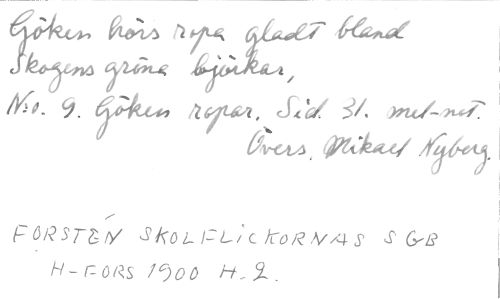 Göken hörs ropa gladt bland
Skogens gröna björkar,
N:o. 9. Göken ropar. Sid. 31. mel-not.
Övers. Mikael Nyberg.
FORSTÉN SKOLFLICKORNAS SGB
H-FORS 1900 H. 2.